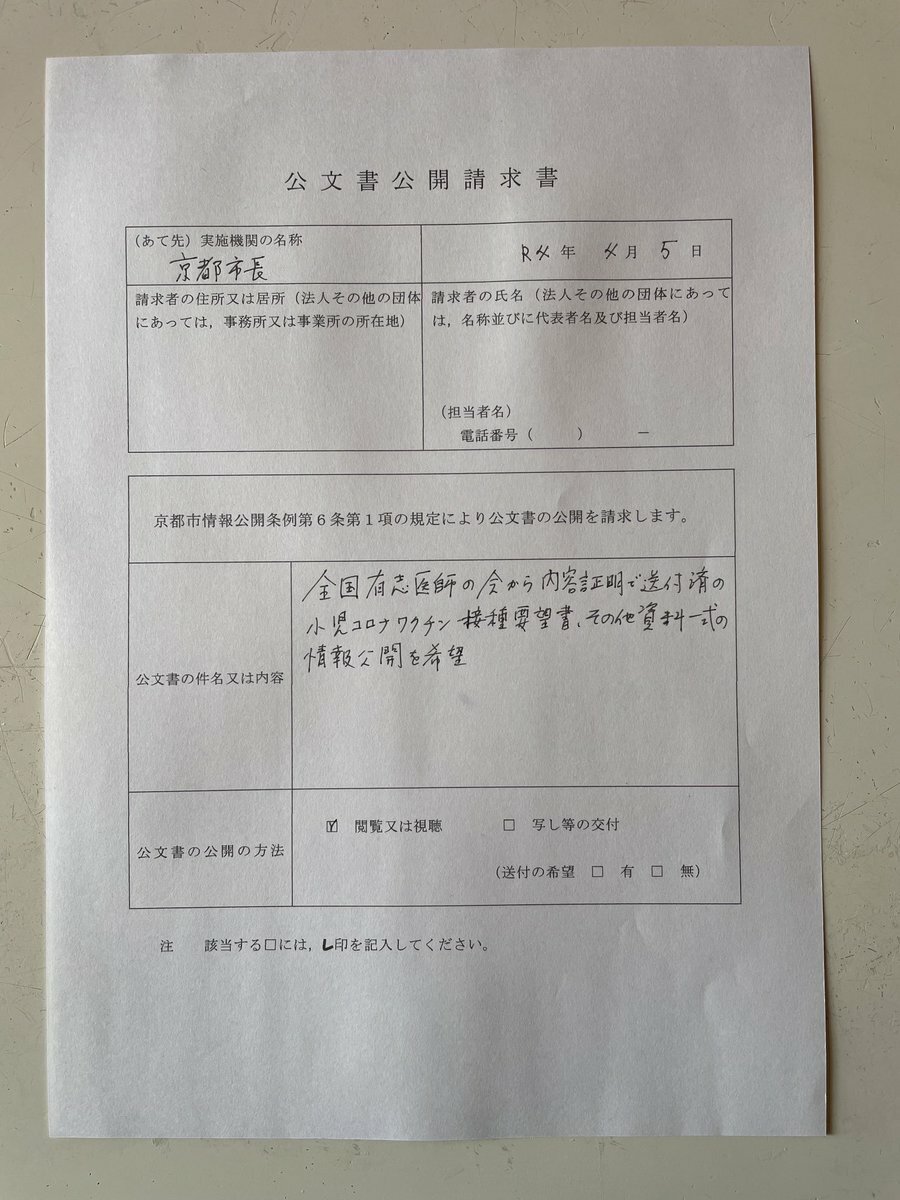 公文書公開請求書
（あて先）実施機関の名称
京都市長
R4年 4月 5日
請求者の住所又は居所（法人その他の団体
にあっては，事務所又は事業所の所在地）
請求者の氏名（法人その他の団体にあって
は，名称並びに代表者名及び担当者名）
（担当者名）
電話番号（　　　）　　　－
京都市情報公開条例第６条第１項の規定により公文書の公開を請求します。
公文書の件名又は内容
全国有志医師の今から内容証明で送付済の
小児コロナワクチン接種要望書、その他資料一式の
情報公開を希望
公文書の公開の方法
☑ 閲覧又は視聴　□ 写し等の交付
（送付の希望 □ 有 □ 無）
注　該当する□には，レ印を記入してください。